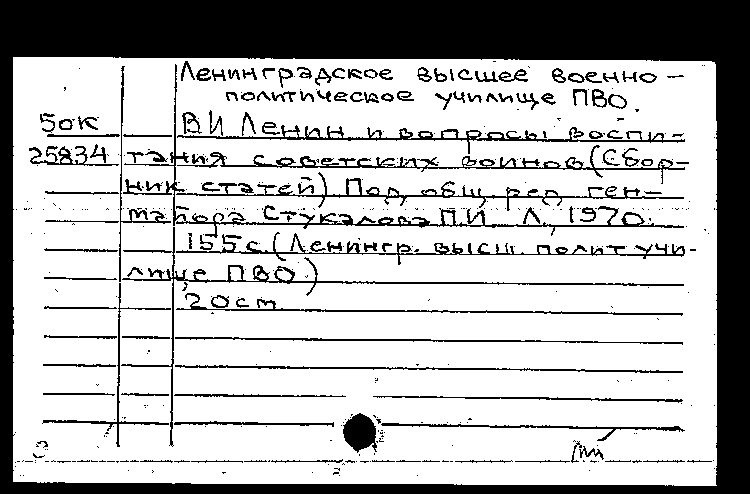 Ленинградское высшее военно-
политическое училище ПВО.
50к В.И Ленин и вопросы воспи-
25834 тания советских воинов (Сбор-
ник статей) Под общ. ред. ген-
майора Стукалова П.И Л., 1970.
155 с. (Ленингр. высш. полит учи-
лище ПВО)
20 см